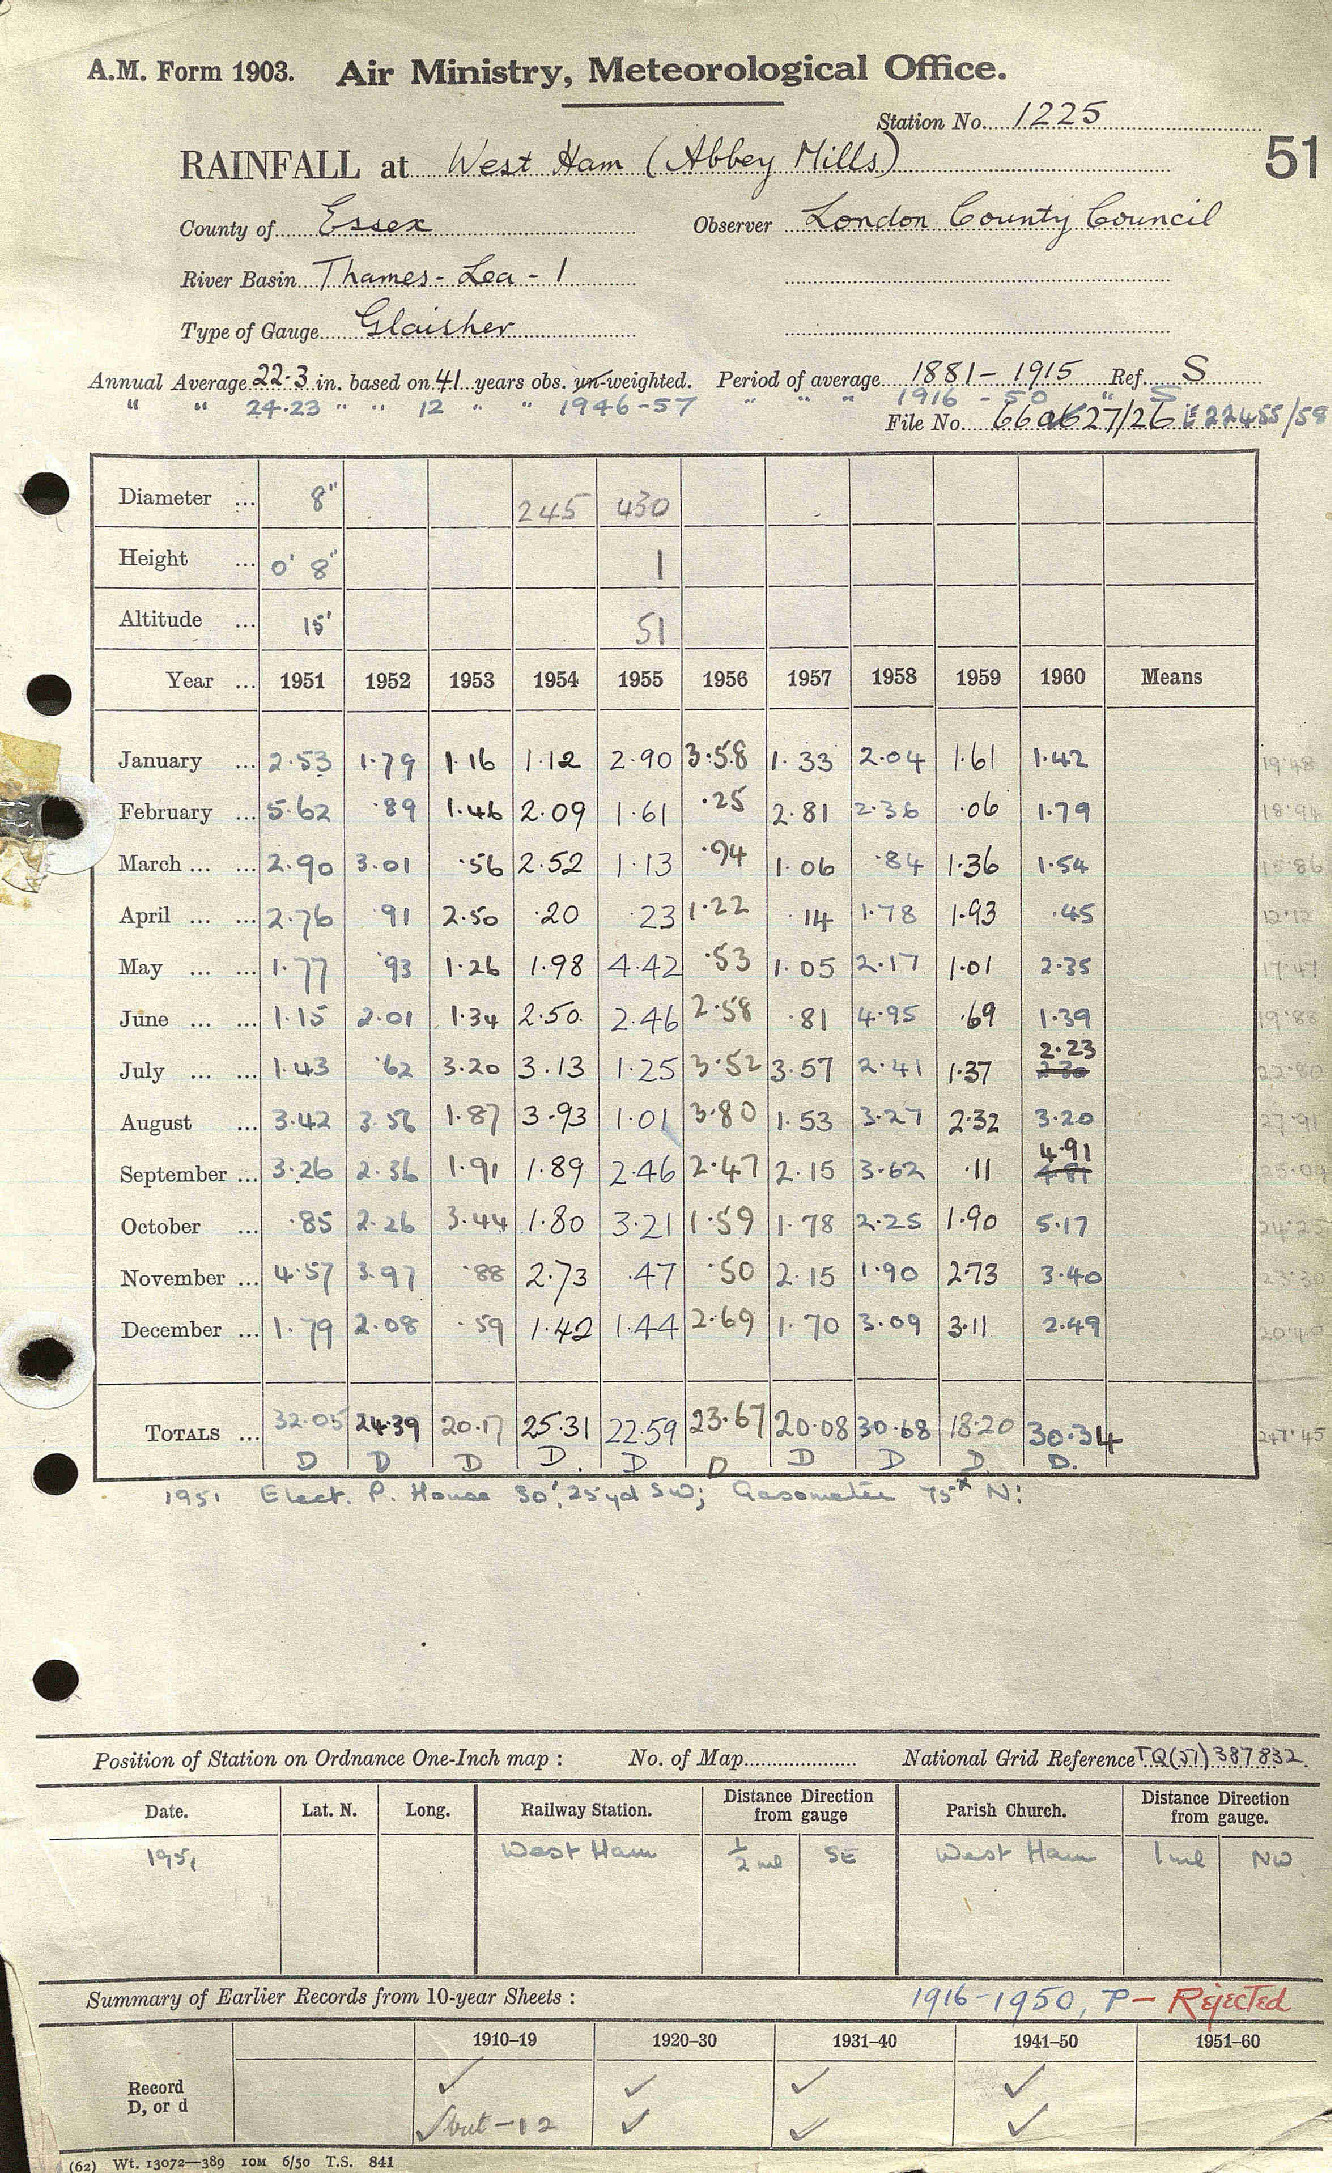 A.M. Form 1903. Air Ministry, Meteorological Office.
Station No. 1225
51
RAINFALL at West Ham (Abbey Mills)
County of Essex Observer London County Council
River Basin Thames - Lea - 1
Type of Gauge Glaisher
Annual Average 22.3 in. based on 41 years obs. un-weighted. Period of average 1881 - 1915 Ref. S
" " 24.23 " " 12 " " 1946-57 " " " 1916 - 50 " S
File No. 27/26 E 22455/58
Diameter ... 8" 245 430
Height ... 0' 8" 1
Altitude ... 15' 51
Year ... 1951 1952 1953 1954 1955 1956 1957 1958 1959 1960 Means
January ... 2.53 1.79 1.16 1.12 2.90 3.58 1.33 2.04 1.61 1.42 19.48
February ... 5.62 .89 1.46 2.09 1.61 .25 2.81 2.36 .06 1.79 18.94
March ... ... 2.90 3.01 .56 2.52 1.13 .94 1.06 .84 1.36 1.54 15.86
April ... ... 2.76 .91 2.50 .20 .23 1.22 .14 1.78 1.93 .45 12.12
May ... ... 1.77 .93 1.26 1.98 4.42 .53 1.05 2.17 1.01 2.35 17.47
June ... ... 1.15 2.01 1.34 2.50 2.46 2.58 .81 4.95 .69 1.39 19.88
2.23
July ... ... 1.43 .62 3.20 3.13 1.25 3.52 3.57 2.41 1.37 2.30 22.80
August ... 3.42 3.56 1.87 3.93 1.01 3.80 1.53 3.27 2.32 3.20 27.91
4.91
September ... 3.26 2.36 1.91 1.89 2.46 2.47 2.15 3.62 .11 4.81 25.09
October ... .85 2.26 3.44 1.80 3.21 1.59 1.78 2.25 1.90 5.17 24.25
November ... 4.57 3.97 .88 2.73 .47 .50 2.15 1.90 2.73 3.40 23.30
December ... 1.79 2.08 .59 1.42 1.44 2.69 1.70 3.09 3.11 2.49 20.40
TOTALS ... 32.05 24.39 20.17 25.31 22.59 23.67 20.08 30.68 18.20 30.34 247.45
D D D D. D D D D D. D.
1951 Elect. P. House 30', 25 yd SW; Gasometer 75 N:
Position of Station on Ordnance One-Inch map : No. of Map National Grid Reference TQ(51) 387832
Date. Lat. N. Long. Railway Station. Distance Direction from gauge Parish Church. Distance Direction from gauge.
1951 West Ham ½ ml SE West Ham 1 ml NW.
Summary of Earlier Records from 10-year Sheets : 1916-1950, P - Rejected
1910-19 1920-30 1931-40 1941-50 1951-60
Record ✓ ✓ ✓ ✓
D, or d ✓ but -12 ✓ ✓ ✓
(62) Wt. 13072—389 10M 6/50 T.S. 841